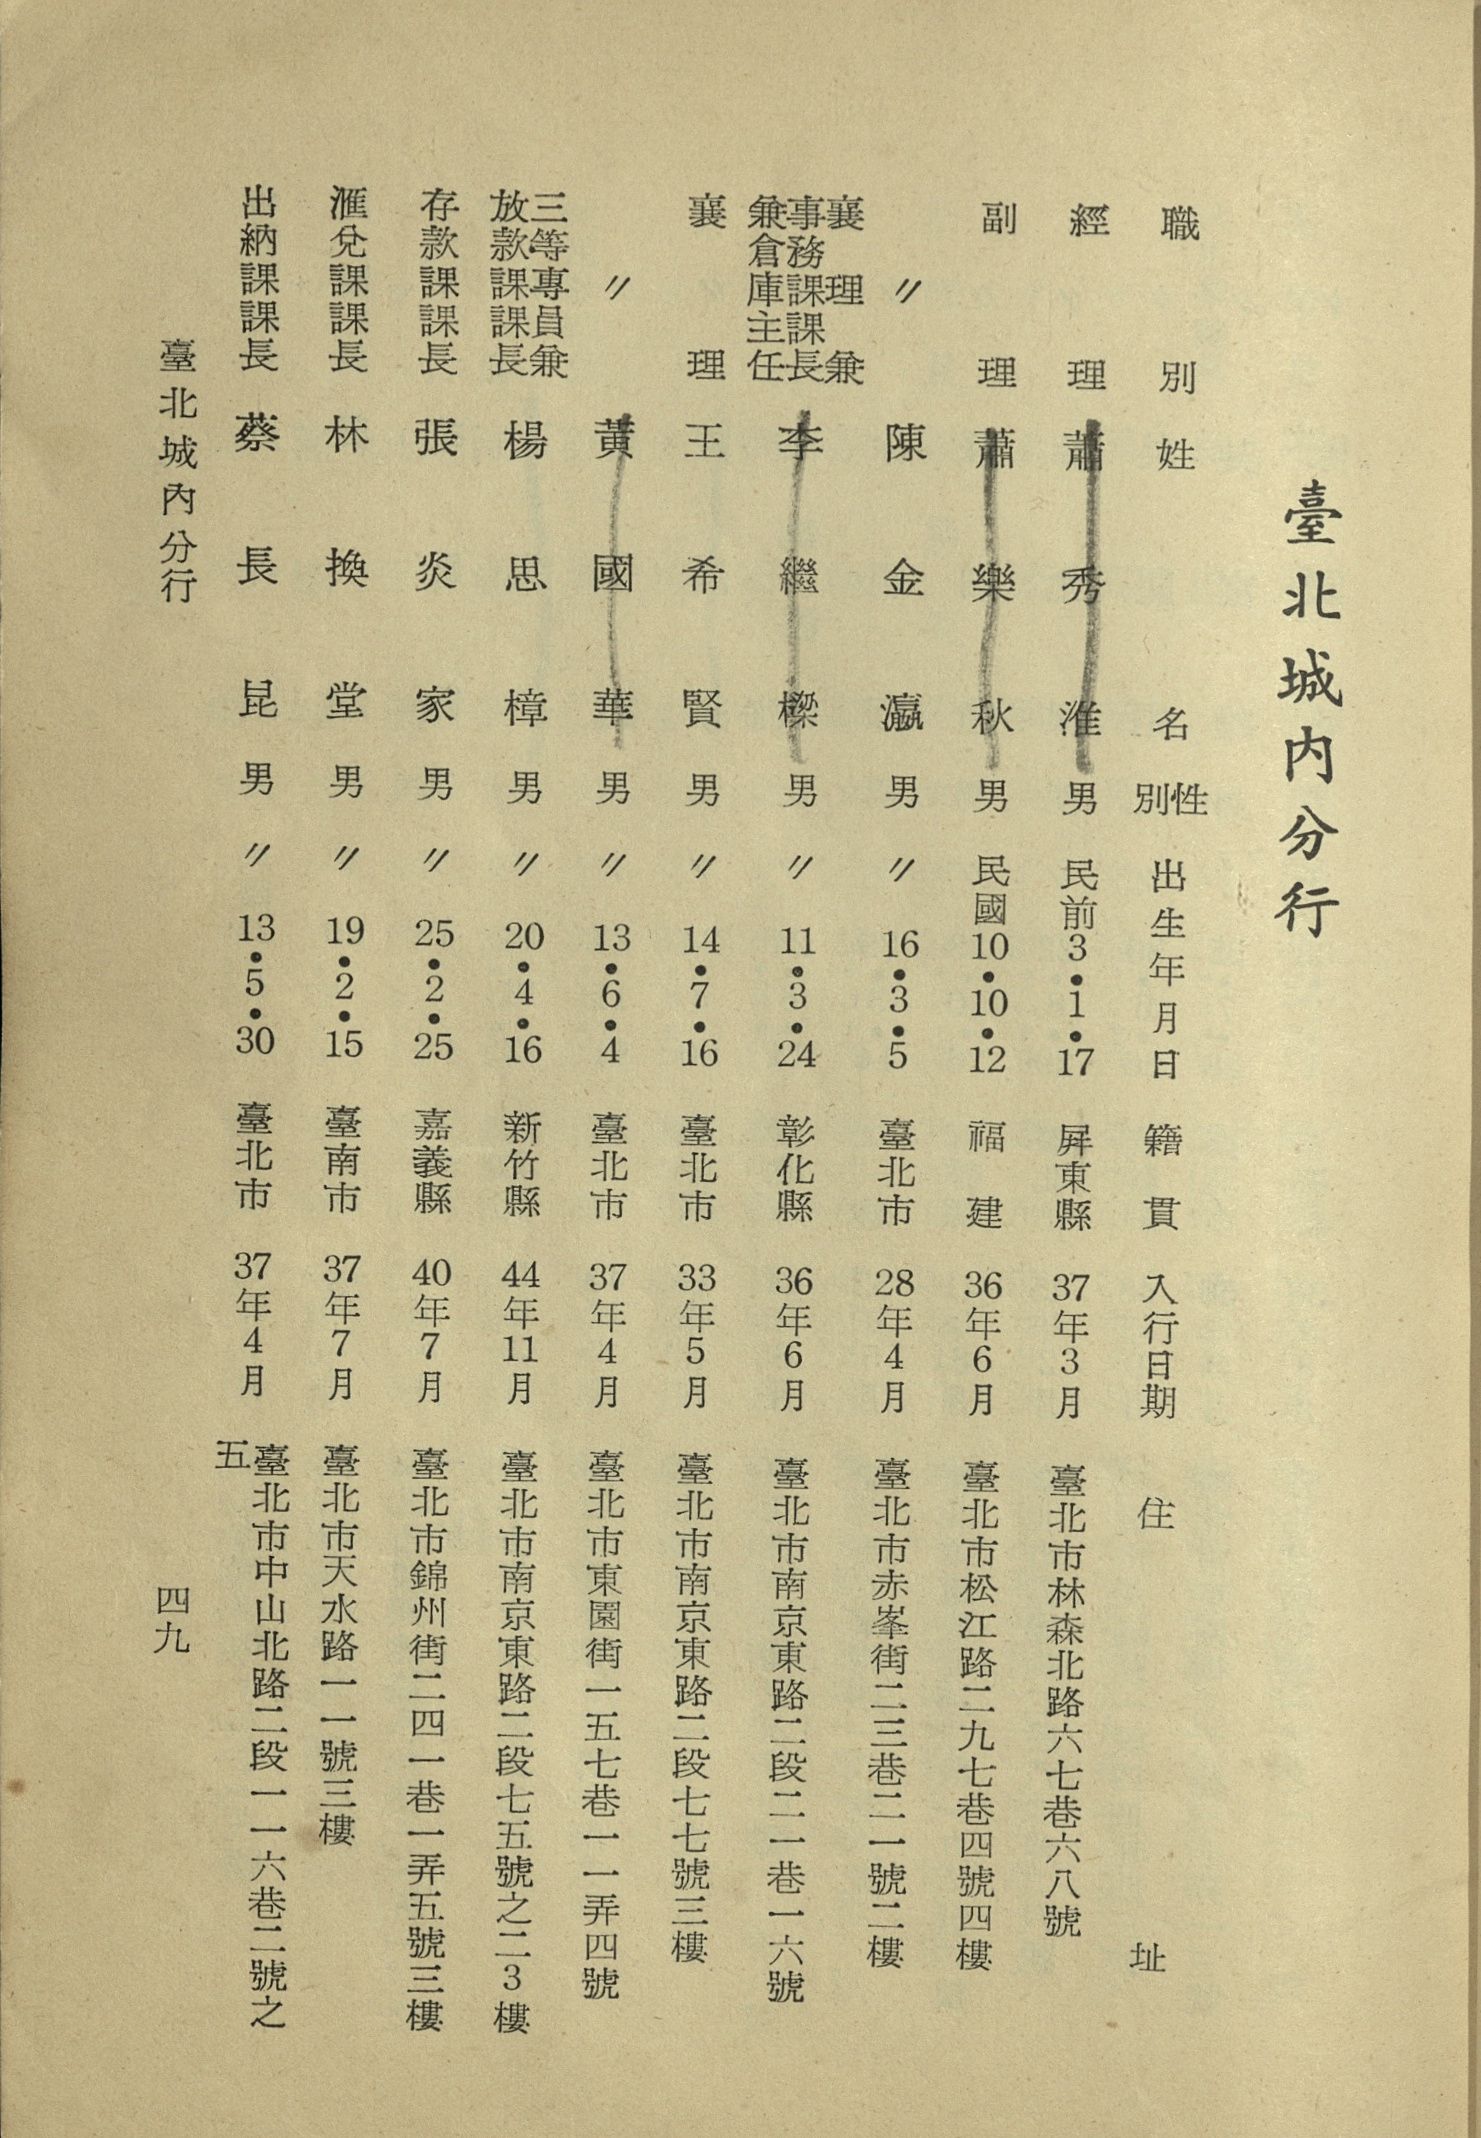 臺北城內分行
職別 姓名 性別 出生年月日 籍貫 入行日期 住址
經理 蕭秀淮 男 民前3•1•17 屏東縣 37年3月 臺北市林森北路六七巷六八號
副理 蕭樂秋 男 民國10•10•12 福建 36年6月 臺北市松江路二九七巷四號四樓
〃 陳金瀛 男 〃16•3•5 臺北市 28年4月 臺北市赤峯街二三巷二一號二樓
襄理兼事務課課長兼倉庫主任 李繼樑 男 〃11•3•24 彰化縣 36年6月 臺北市南京東路二段二一巷一六號
襄理 王希賢 男 〃14•7•16 臺北市 33年5月 臺北市南京東路二段七七號三樓
〃 黃國華 男 〃13•6•4 臺北市 37年4月 臺北市東園街一五七巷一一弄四號
三等專員兼放款課課長 楊思樟 男 〃20•4•16 新竹縣 44年11月 臺北市南京東路二段七五號之二3樓
存款課課長 張炎家 男 〃25•2•25 嘉義縣 40年7月 臺北市錦州街二四一巷一弄五號三樓
滙兌課課長 林換堂 男 〃19•2•15 臺南市 37年7月 臺北市天水路一一號三樓
出納課課長 蔡長昆 男 〃13•5•30 臺北市 37年4月 臺北市中山北路二段一一六巷二號之五
臺北城內分行 四九